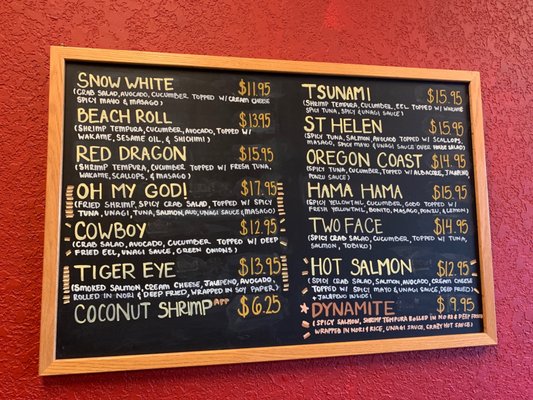 SNOW WHITE $11.95
(CRAB SALAD, AVOCADO, CUCUMBER TOPPED W/ CREAM CHEESE
SPICY MAYO & MASAGO)
BEACH ROLL $13.95
(SHRIMP TEMPURA, CUCUMBER, AVOCADO, TOPPED W/
WAKAME, SESAME OIL, & SHICHIMI)
RED DRAGON $15.95
(SHRIMP TEMPURA, CUCUMBER TOPPED W/ FRESH TUNA,
WAKAME, SCALLOPS, & MASAGO)
OH MY GOD! $17.95
(FRIED SHRIMP, SPICY CRAB SALAD, TOPPED W/ SPICY
TUNA, UNAGI, TUNA, SALMON, AVO, UNAGI SAUCE & MASAGO)
COWBOY $12.95
(CRAB SALAD, AVOCADO, CUCUMBER TOPPED W/ DEEP
FRIED EEL, UNAGI SAUCE, GREEN ONIONS)
TIGER EYE $13.95
(SMOKED SALMON, CREAM CHEESE, JALAPENO, AVOCADO,
ROLLED IN NORI & DEEP FRIED, WRAPPED IN SOY PAPER)
COCONUT SHRIMP APP $6.25
TSUNAMI $15.95
(SHRIMP TEMPURA, CUCUMBER, EEL TOPPED W/
SPICY TUNA, SPICY & UNAGI SAUCE)
ST HELEN $15.95
(SPICY TUNA, SALMON, AVOCADO TOPPED W/ SCALLOPS,
MASAGO, SPICY MAYO & UNAGI SAUCE OVER SALAD)
OREGON COAST $14.95
(SPICY TUNA, CUCUMBER, TOPPED W/ ALBACORE, JALAPENO
PONZU SAUCE)
HAMA HAMA $15.95
(SPICY YELLOWTAIL, CUCUMBER, GOBO TOPPED W/
FRESH YELLOWTAIL, BONITO, MASAGO, PONZU, & LEMON)
TWO FACE $14.95
(SPICY CRAB SALAD, AVOCADO, CUCUMBER TOPPED W/ TUNA,
SALMON, TOBIKO)
HOT SALMON $12.95
(SPICY CRAB SALAD, SALMON, AVOCADO, CREAM CHEESE
TOPPED W/ SPICY MAYO & UNAGI SAUCE, DEEP FRIED)
+ JALAPENO INSIDE!
DYNAMITE $9.95
(SPICY SALMON, SHRIMP TEMPURA ROLLED IN NORI & DEEP FRIED
WRAPPED IN NORI & RICE, UNAGI SAUCE, CRAZY HOT SAUCE)